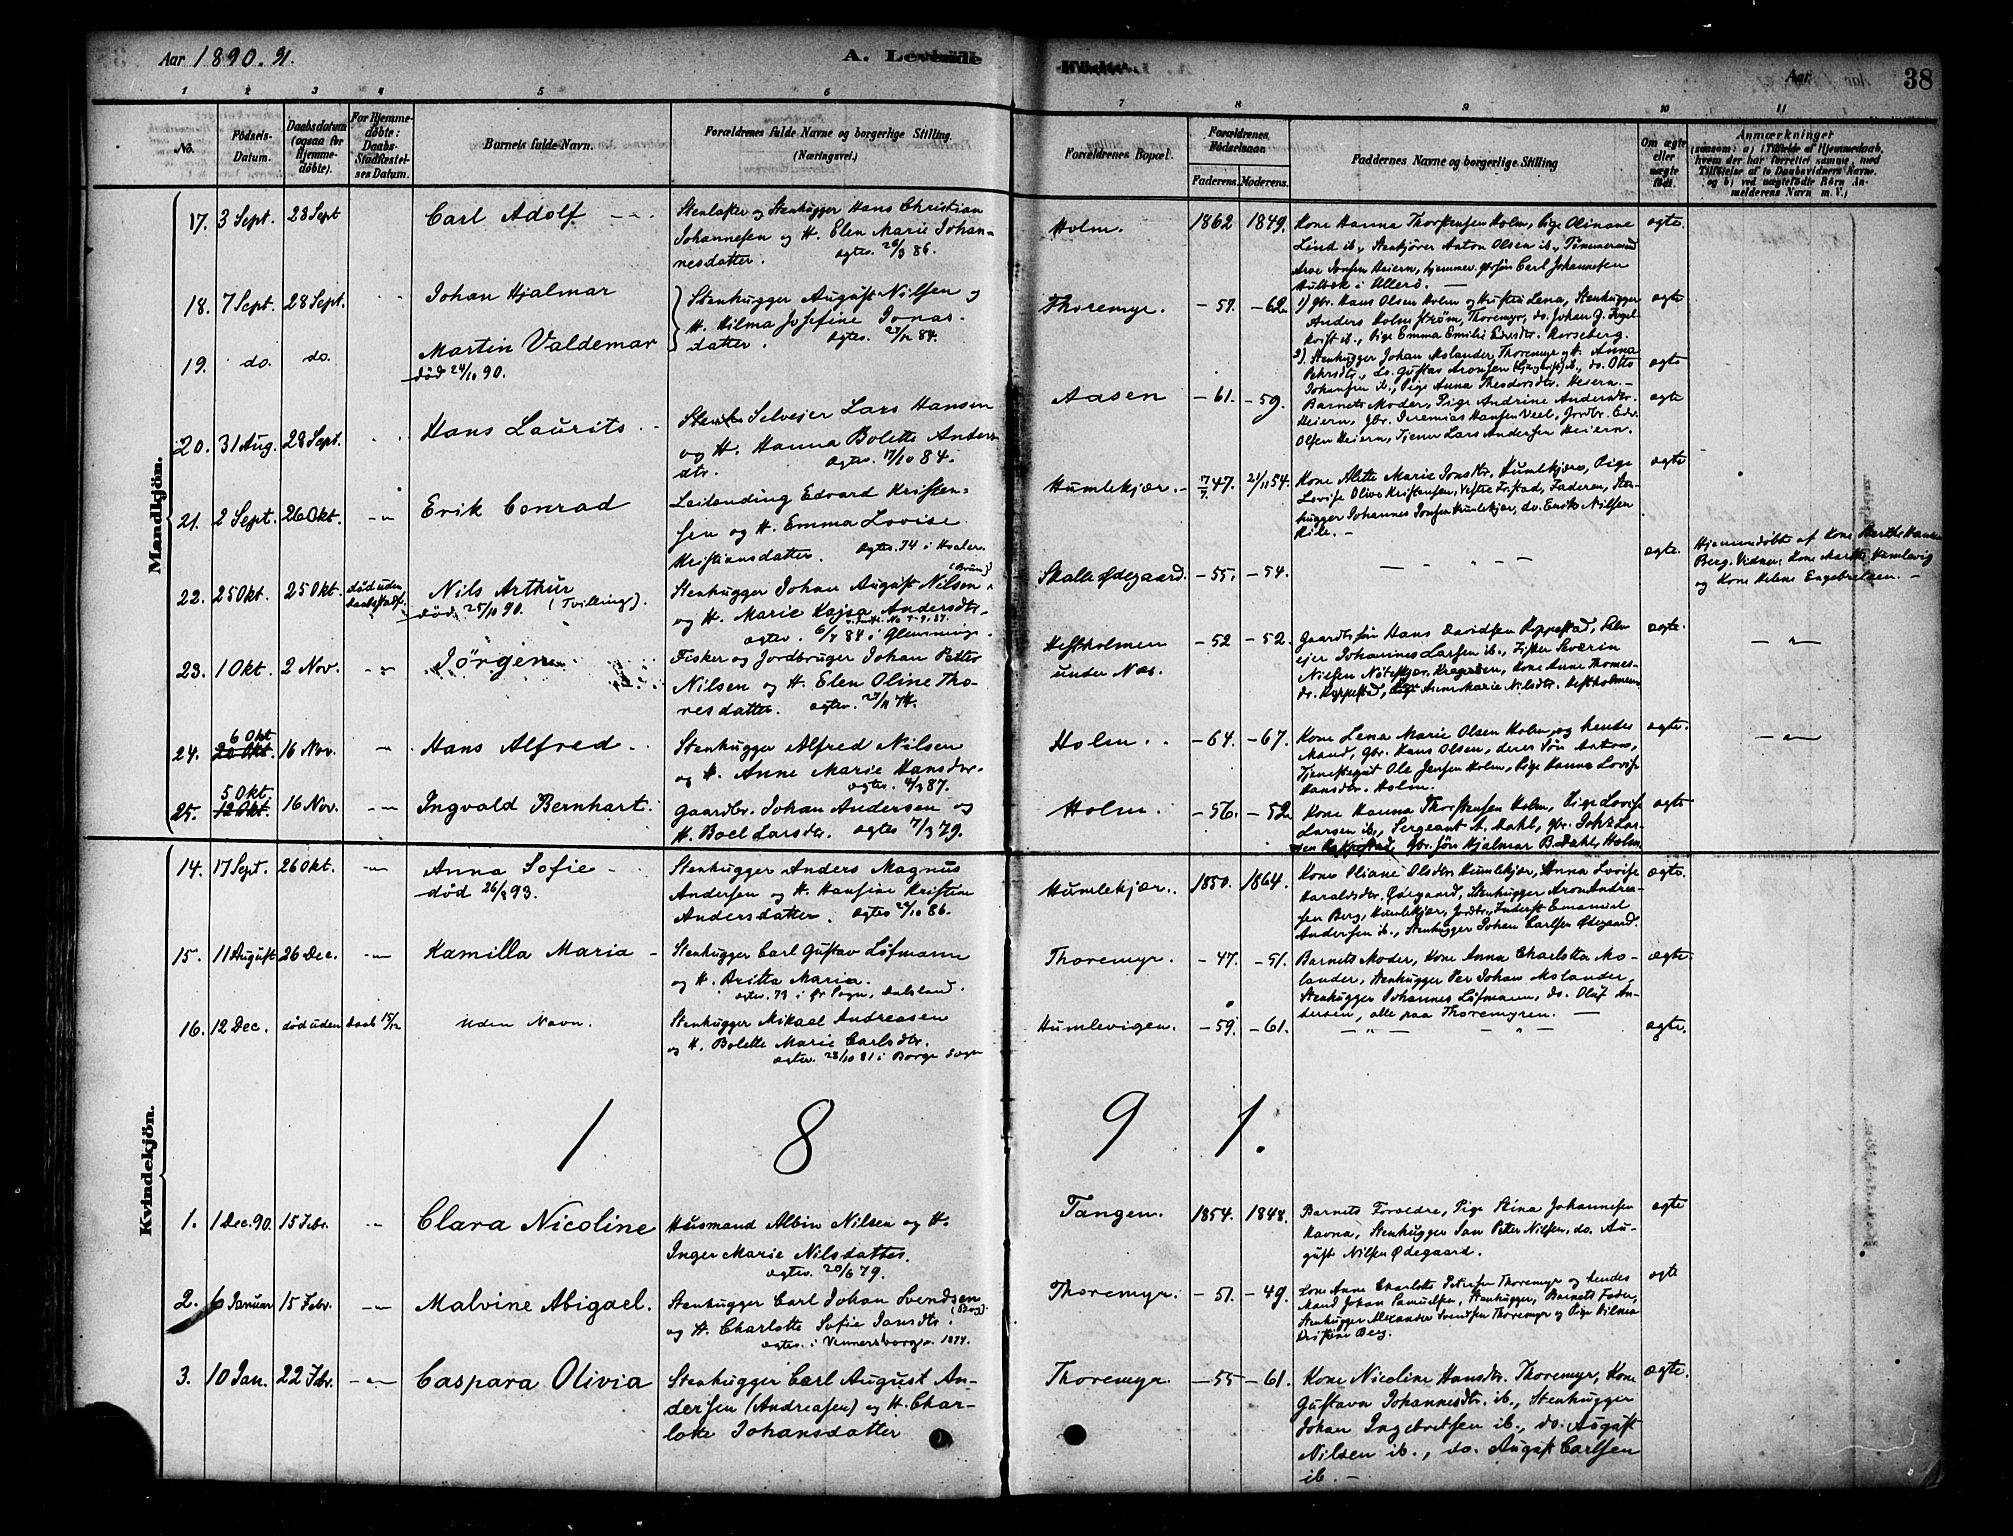 Aar 1890. 91.
A. Levende
Fødte.
Aar
38
1
2
3
4
5
6
7
8
9
10
11
No.
Fødsels-
Datum.
Daabsdatum
(ogsaa for
Hjemme-
døbte).
For Hjemme-
døbte:
Daabs-
Stadfæstel-
ses Datum.
Barnets fulde Navn.
Forældrenes fulde Navne og borgerlige Stilling.
(Næringsvei.)
Forældrenes Bopæl.
Forældrenes
Fødselsaar.
Faderens. Moderens.
Faddernes Navne og borgerlige Stilling
Om ægte
eller
uægte
født.
Anmærkninger
(saasom: a) i Tilfælde af Hjemmedaab,
hvem der har forrettet samme, med
Tilføielse af to Daabsvidners Navne.
og b) ved uægtefødte Børn An-
melderens Navn m. V.)
Mandkjön.
17. 3 Sept. 28 Sept Carl Adolf
Stenhugger Hans Christian
Johannesen og H. Elen Marie Johan-
nesdatter. Ægtev. 26/3 86.
Holm. 1862 1849.
Kone Hanna Thorstensen Holm, Pige Olinane
Lind ib., Anton Olsen ib., Tømmermand
Arve Jonsen Heiern, Carl Johannesen
ægte.
18. 7 Sept. 28 Sept. Johan Hjalmar
Stenhugger August Nilsen og
H. Hilma Josefine Jonas-
datter.
Thoremyr. -57. -62.
1) Gbr. Hans Olsen Holm og Hustru Lena, Stenhugger
Anders Holmstrøm, Thoremyr, do. Johan G.
ib., Pige Emma Emilie
ægte
19. do. do. Martin Valdemar
død 24/10 90.
2). Stenhugger Johan Molander, Thoremyr og H. Anna
do. Gustav Aronsen ib., do. Otto
Johansen ib., Pige Anna Heiern.
ægte
20. 31 Aug. 28 Sept. Hans Laurits
Selveier Lars Hansen
og H. Hanna Bolette Anders
dtr. Ægtev. 17/10 84.
Aasen -61. -59.
Barnets Moder, Pige Andrine Andersdtr.
Heiern, Gbr. Jeremias Hansen Veel, Jordbr. Edv.
Olsen Heiern, Tjener Lars Andersen Heiern.
ægte
21. 2 Sept. 26 Okt. Erik Conrad
Leilending Edvard Kristen-
sen og H. Emma Lovise
Kristiansdatter. Ægtev. 74 i Hvaler.
Humlekjær. 47. 21/11 54.
Kone Alette Marie Jonsdtr. Humlekjær, Pige
Lovise Olive Kristensen, Faderen, Sten-
hugger Johannes Jonsen Humlekjær, do. Erik Nilsen
ægte
22. 25 Okt. 25 Okt. død uden
daabsstadf. Nils Arthur
død 25/10 90. (Tvilling).
Stenhugger Johan August Nilsen
og H. Marie Kajsa Andersdtr.
Skalle Ødegaard. -55. -54.
ægte.
Hjemmedøbt af Kone Marthe Hansen
Berg. Vidner: Kone Marthe Humlevig
og Kone Helene Engebretsen.
23. 1 Okt. 2 Nov. Jørgen
Fisker og Jordbruger Johan Petter
Nilsen og H. Elen Oline Tho-
resdatter. Ægtev. 74.
Hestholmen
under Næs. -52 -52.
Gaardbr. søn Hans Davidsen Koppestad, Selv-
eier Johannes Larsen ib., Fisker Severin
Nilsen Kragerøen, Kone Anne Thomes-
dr. Koppestad, Pige Anne Marie Nilsdtr. Hestholmen
ægte.
24. 6 Okt
20 Okt. 16 Nov. Hans Alfred
Stenhugger Alfred Nilsen
og H. Anne Marie Hansdtr.
Holm. -64. -67.
Kone Lena Marie Olsen Holm og hendes
Mand, Gbr. Hans Olsen, deres Søn Anton,
Tjenestegut Ole Jensen Holm, Pige Hanna Lovise
Hansdtr. Holm.
ægte.
25. 5 Okt.
12 Okt. 16 Nov. Ingvald Bernhart.
Gaardbr. Johan Andersen og
H. Boel Larsdtr. ægtev 7/3 79.
Holm. -56. -52.
Kone Hanna Thorstensen Holm, Pige Lovise
Larsen ib., Sergeant A. Dahl, Gbr. Joh. Lar-
sen Koppestad, Gbr. søn Hjalmar B. Dahl, Holm
ægte
Kvindekjön.
14. 17 Sept. 26 Okt. Anna Sofie
død 26/8 93.
Stenhugger Anders Magnus
Andersen og H. Hansine Kristine
Andersdatter. Ægtev 24/10 86.
Humlekjær. 1850. 1864.
Kone Oliane Olsdtr. Humlekjær, Anna Lovise
Haraldsdtr. Ødegaard, Stenhugger Aron Andrea-
sen Berg, Humlekjær, Emanuel
Andersen ib., Stenhugger Johan Carlsen Ødegaard.
ægte.
15. 11 August 26 Dec. Kamilla Maria
Stenhugger Carl Gustav Löfmann
og H. Britta Maria.
ægtev. 79 i Ør Sogn, Dalsland.
Thoremyr. -47. -51.
Barnets Moder, Kone Anna Charlotta Mo-
lander, Stenhugger Per Johan Molander,
Stenhugger Johannes Löfmann, do. Oluf An-
dersen, alle paa Thoremyren.
ægte
16. 12 Dec. død uden daab 15/12 Uden Navn.
Stenhugger Mikael Andreasen
og H. Bolette Marie Carlsdtr.
ægtev. 28/10 81 i Borge Sogn
Humlevigen. -59. -61.
ægte.
1 8 9 1.
1. 1 Dec. 90. 15 Febr. Clara Nicoline
Husmand Albin Nilsen og H.
Inger Marie Nilsdatter.
Ægtev. 20/6 79.
Tangen. 1854. 1848.
Barnets Forældre, Pige Stina Johannesen
Havna, Stenhugger Jan Peter Nilsen, do. Au-
gust Nilsen Ødegaard.
ægte
2. 6 Januar 15 Febr. Malvine Abigael.
Stenhugger Carl Johan Svendsen
(Berg).
og H. Charlotte Sofie Jansdtr.
ægtev. i Vennersborg 1874.
Thoremyr. -51. -49.
Kone Anne Charlotte Petersen Thoremyr og hendes
Mand Johan Samuelsen, Stenhugger, Barnets Fader,
Stenhugger Alexander Svendsen Thoremyr og Pige Hilma
Kristine Berg.
ægte
3. 10 Jan. 22 Febr. Caspara Olivia
Stenhugger Carl August An-
dersen (Andreasen) og H. Char-
lotte Johansdatter
Thoremyr. -55 -61.
Kone Nicoline Hansdtr. Thoremyr, Kone
Gustava Johannesdtr. ib., Stenhugger
Johan Ingebretsen ib., do. August
Nilsen ib., do. August Carlsen
ib.
ægte.